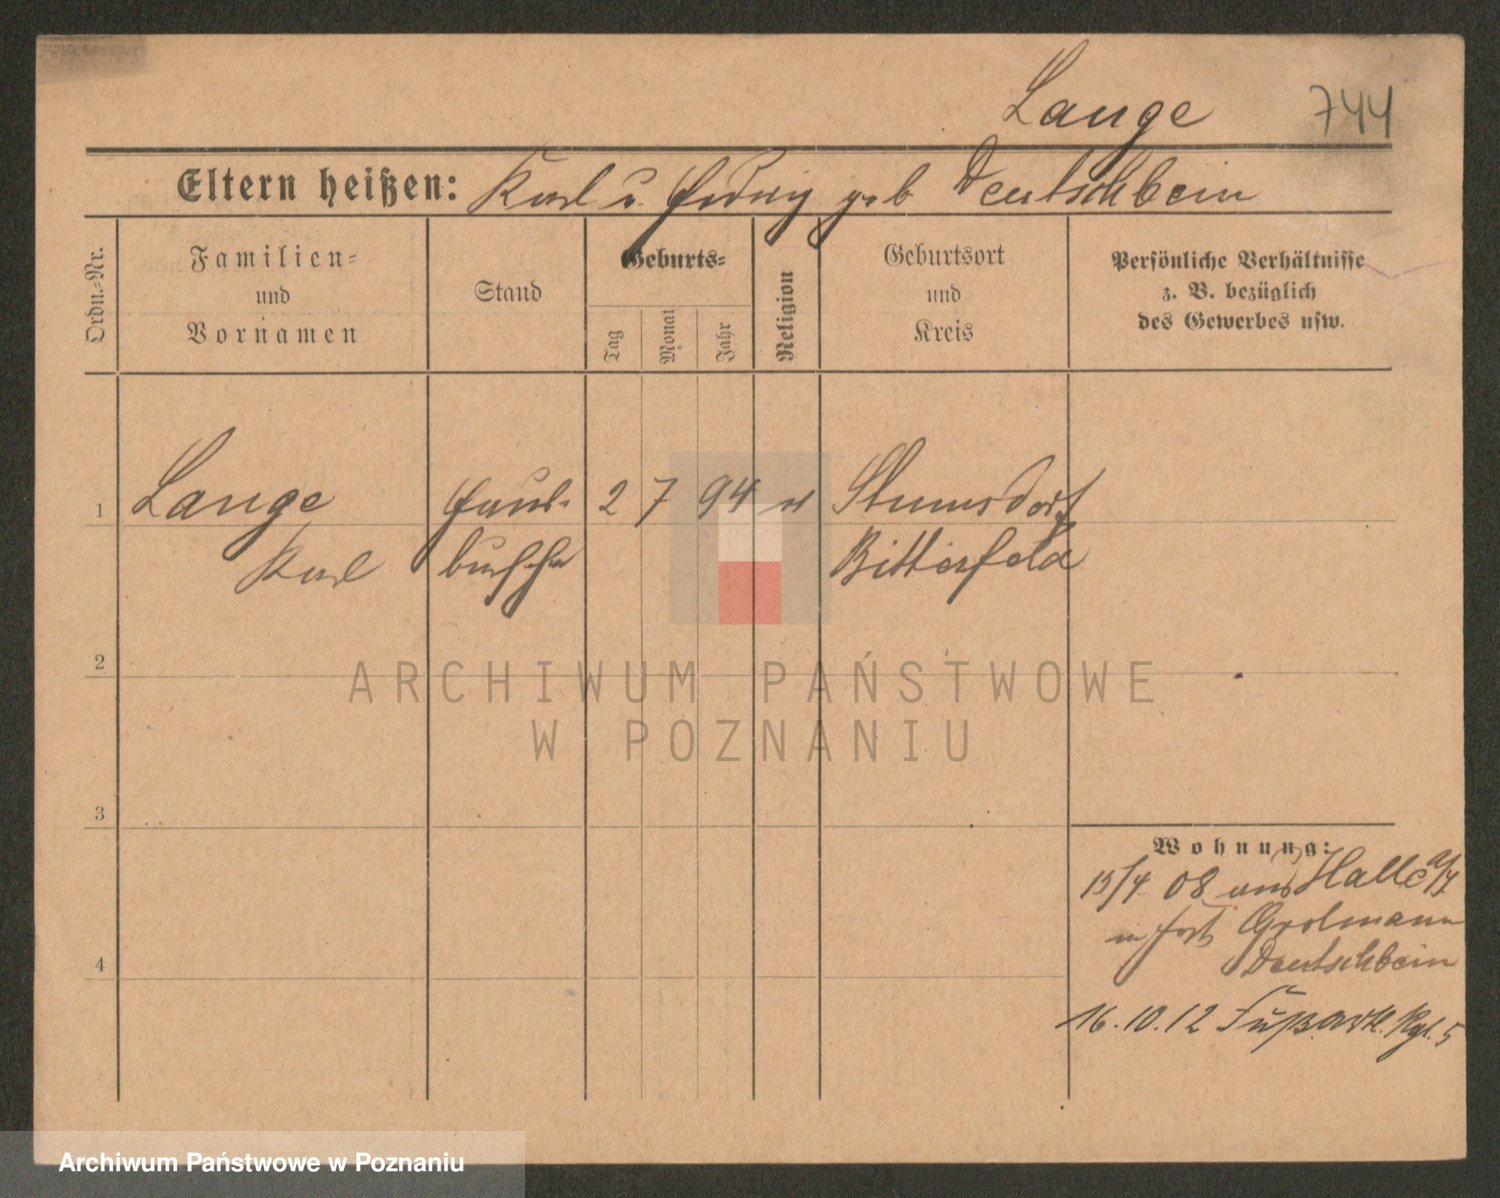 Lange 744
Eltern heißen: Karl u. Hedwig geb Deutschbein
Ordn.-Nr.
Familien-
und
Vornamen
Stand
Geburts-
Tag
Monat
Jahr
Religion
Geburtsort
und
Kreis
Persönliche Verhältnisse
z. B. bezüglich
des Gewerbes usw.
1 Lange 2 7 94 Stumsdorf
Karl Bitterfeld
2
ARCHIWUM PAŃSTWOWE
W POZNANIU
3
Wohnung:
15/4 08 aus Halle a/S
in Fort Grolmann
4 Deutschbein
16.10.12 Fußartl. Rgt. 5
Archiwum Państwowe w Poznaniu